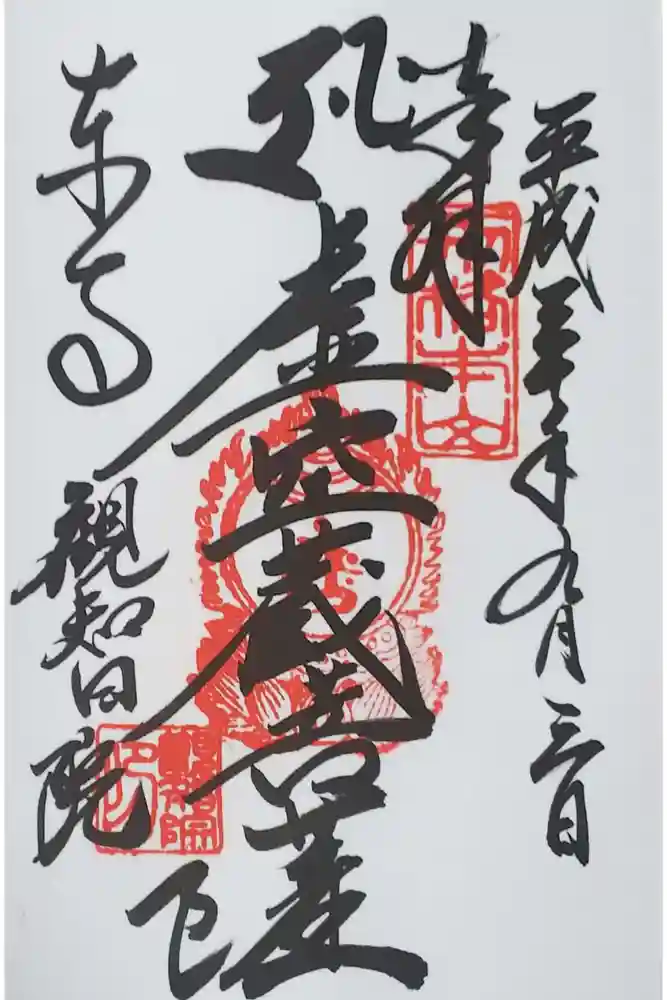 奉拝
平成三十年九月三日
虚空蔵菩薩
東寺
観智院